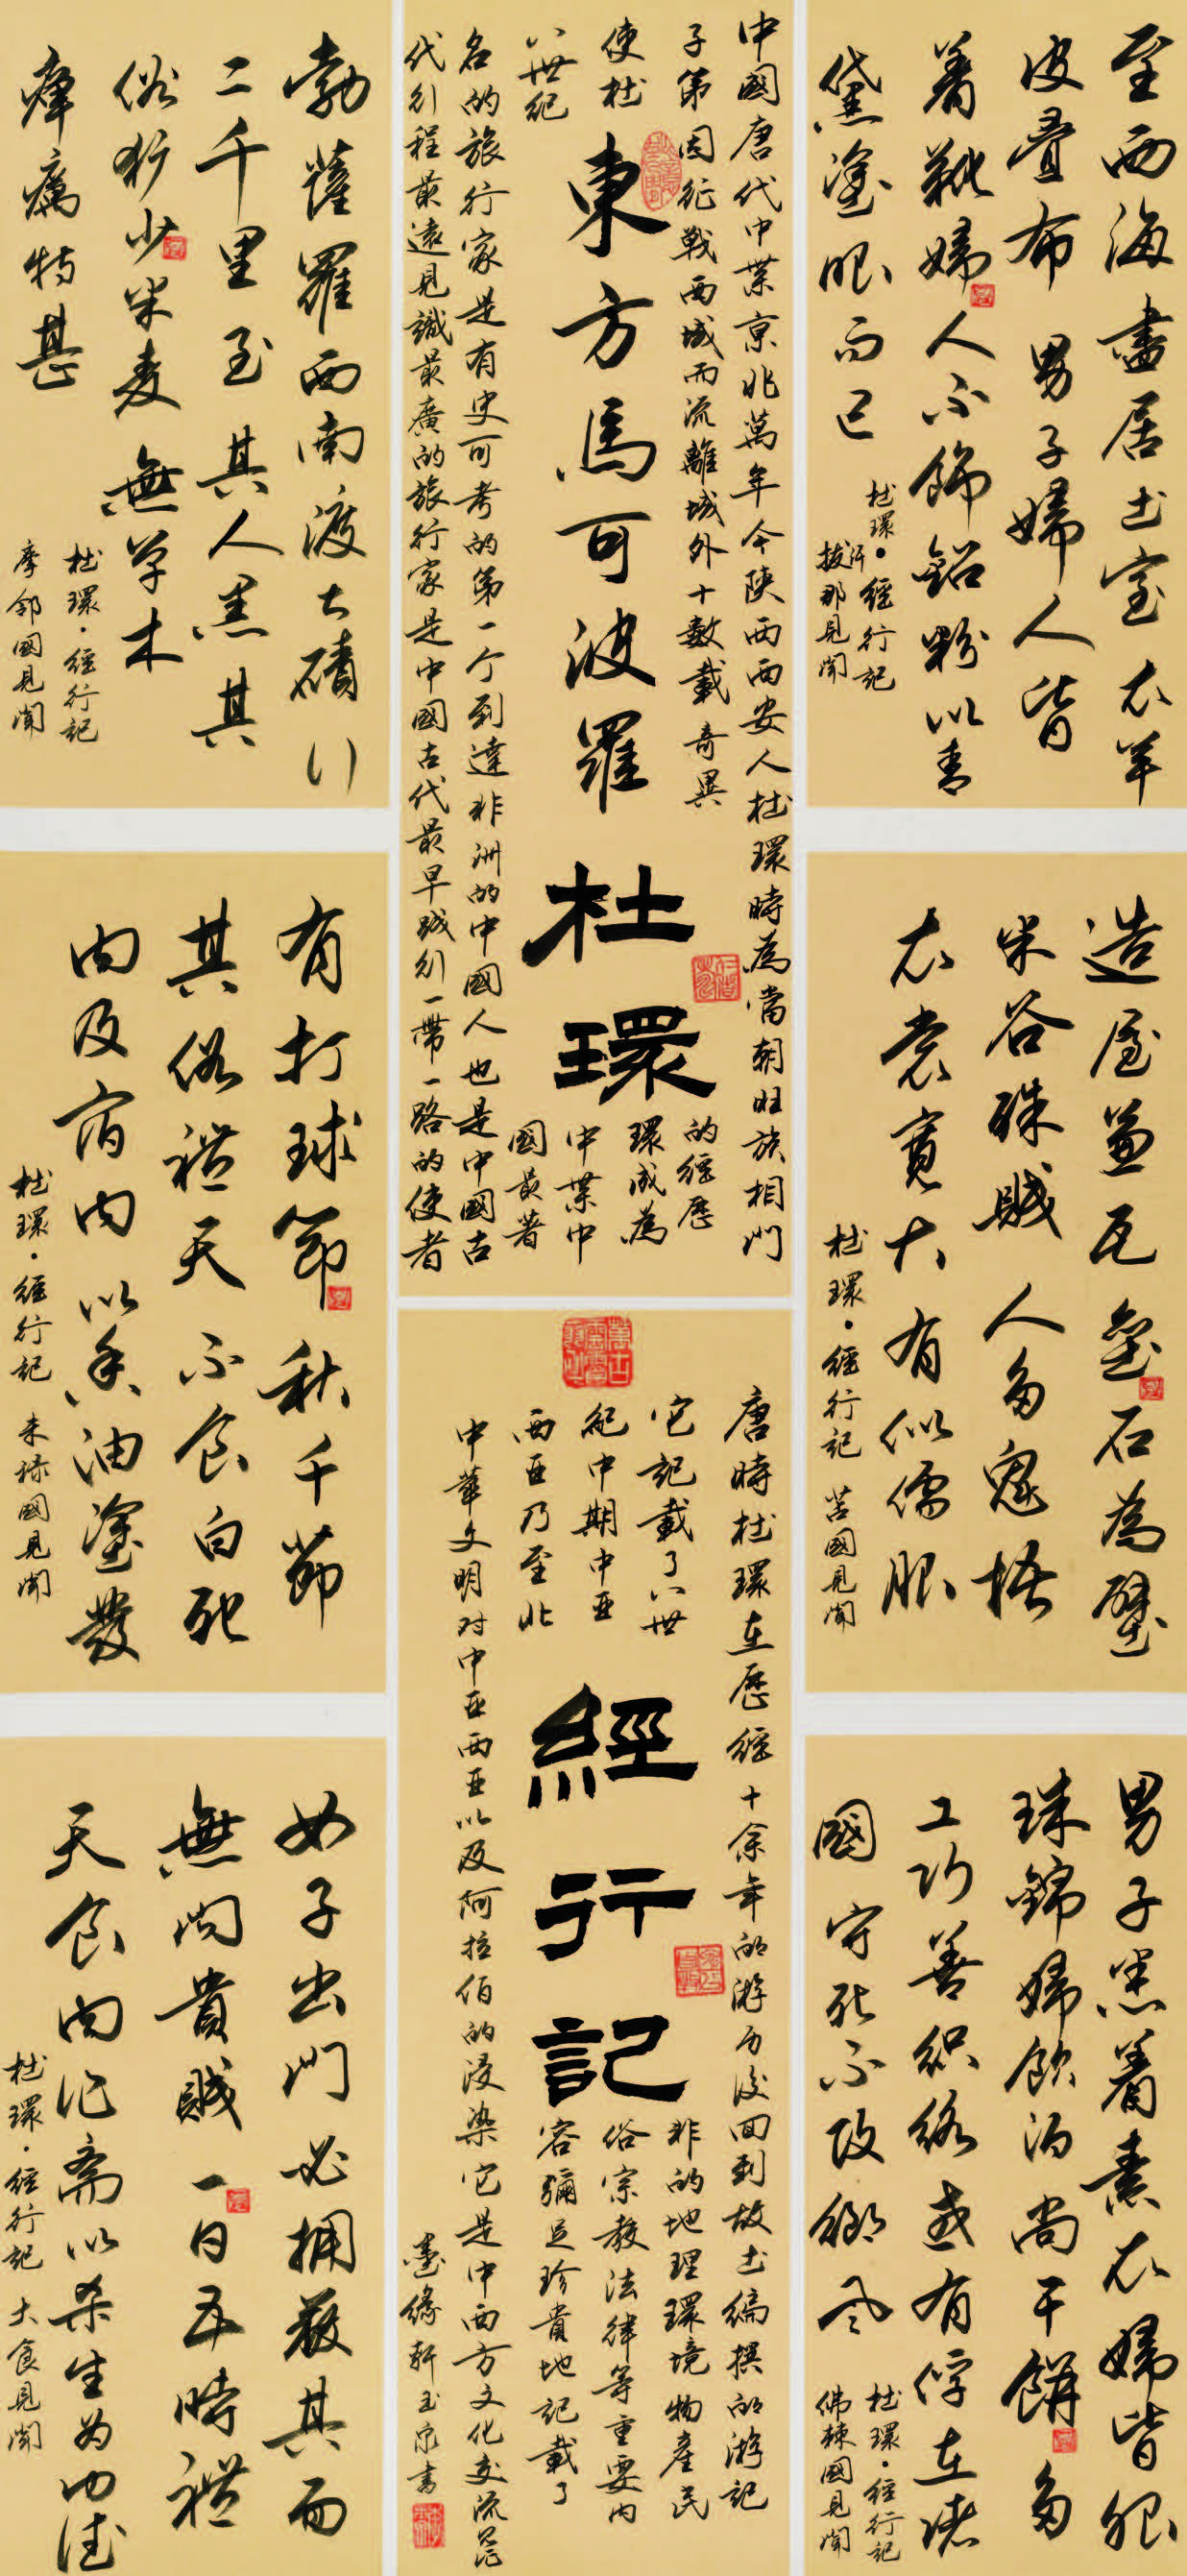 至西海盡居土室衣羊
皮疊布男子婦人皆
著靴婦人不飾鉛粉以青
黛塗眼而已
杜環·經行記
拔汗那見聞
造屋兼瓦壘石為壁
米谷殊賤人多魁梧
衣裳寬大有似儒服
杜環·經行記 苫國見聞
男子悉著素衣婦皆服
珠錦婦飲酒尚干餅多
工巧善織絡或有俘在諸
國守死不改鄉風
杜環·經行記
佛棶國見聞
中國唐代中葉京兆萬年今陝西西安人杜環時為當朝旺族相門
子弟因征戰西域而流離域外十數載奇異
的經歷
使杜
環成為
八世紀
中葉中
國最著
名的旅行家是有史可考的第一个到達非洲的中國人也是中國古
代行程最遠見識最廣的旅行家是中國古代最早踐行一帶一路的使者
東方馬可波羅
杜環
唐時杜環在歷經十余年的游历後回到故土編撰的游記
它記載了八世
紀中期中亞
西亞乃至北
非的地理環境物產民
俗宗教法律等重要内
容彌足珍貴地記載了
中華文明对中亚西亚以及阿拉伯的浸染它是中西方文化交流
經行記
墨緣軒玉泉書
勃薩羅西南渡大磧行
二千里至其人黑其
俗獷少米麦無草木
瘴癘特甚
杜環·經行記
摩鄰國見聞
有打球節秋千節
其俗禮天不食自死
肉及宿肉以香油塗發
杜環·經行記 末祿國見聞
女子出門必擁蔽其面
無問貴賤一日五時禮
天食肉作斋以杀生为功德
杜環·經行記 大食見聞